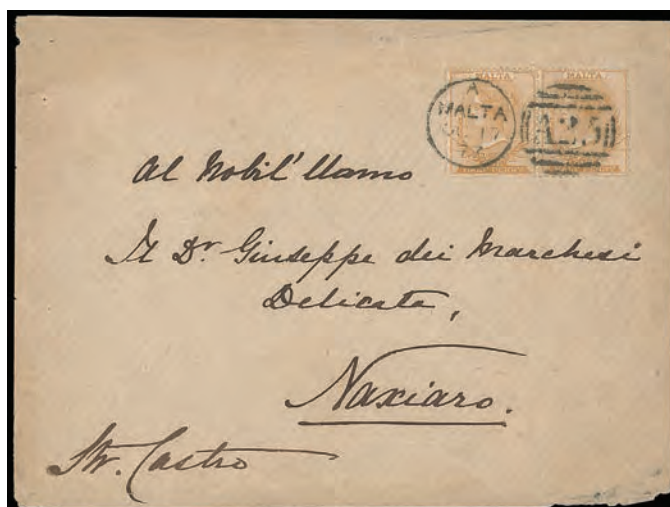 MALTA MALTA
A
MALTA
17
A25
Al Nobil' Uomo
Il Dr. Giuseppe dei Marchesi
Delicata,
Naxiaro.
Str. Castro